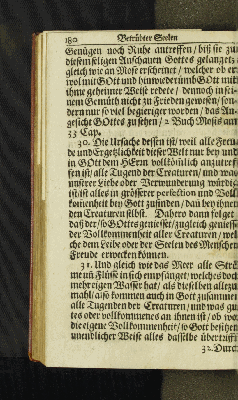 180 Betrübter Seelen
Genügen noch Ruhe antreffen / biß sie zu
diesem seligen Anschauen Gottes gelangets
gleich wie an Mose erscheinet / welcher ob er
wol mit GOtt und hinwiederumb GOtt mit
ihme geheimer Weise redete / dennoch in sei-
nem Gemüth nicht zu Frieden gewesen / son-
dern nur so viel begieriger worden / das An-
gesicht GOttes zu sehen / 2 Buch Mosis am
33 Cap.
30. Die Ursache dessen ist / weil alle Freu-
de und Ergetzlichkeit dieser Welt nur bey und
in GOtt dem HErrn vollkömlich anzutref-
fen ist / alle Tugend der Creaturen / und was
unsrer Liebe oder Verwunderung würdig
ist / ist alles in grösserer perfection und Voll-
kom̃enheit bey Gott zufinden / dan bey ihnen
den Creaturen selbst. Dahero dann folget /
daß der / so GOttes geniesset / zugleich geniesse
der Vollkommenheit aller Creaturen / wel-
che dem Leibe oder der Seelen des Menschen
Freude erwecken können.
31. Und gleich wie das Meer alle Strö-
me uñ Flüsse in sich empfänget / welches doch
mehr eigen Wasser hat / als dieselben allezu-
mahl / also kommen auch in Gott zusammen
alle Tugenden der Creaturen / und was gu-
tes oder vollkommenes an ihnen ist / ob wol
die eigene Vollkommenheit / so Gott besitzet
unendlicher Weise alles dasselbe übertriff
32. Durch